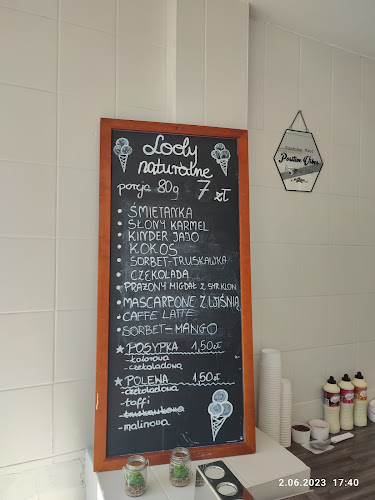 Lody
naturalne
porcja 80g 7 zł
• ŚMIETANKA
• SŁONY KARMEL
• KINDER JAJO
• KOKOS
• SORBET-TRUSKAWKA
• CZEKOLADA
• PRAŻONY MIGDAŁ Z SYR KLON
• MASCARPONE Z WIŚNIĄ
• CAFFE LATTE
• SORBET-MANGO
★ POSYPKA 1,50zł
- kolorowa
- czekoladowa
★ POLEWA 1,50zł
- czekoladowa
- toffi
- truskawkowa
- malinowa
Positive Vibes
2.06.2023 17:40